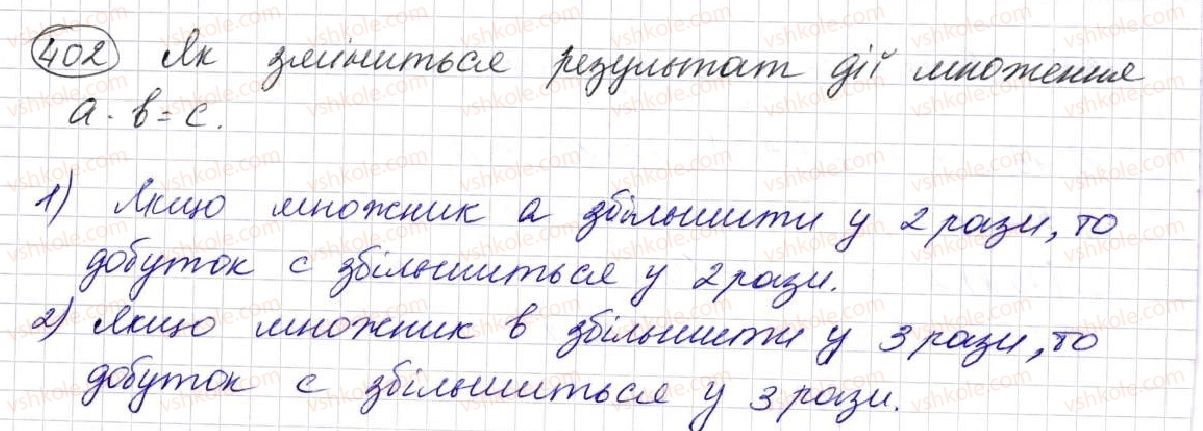 402 Як зміниться результат дії множення
a · b = c.
1) Якщо множник a збільшити у 2 рази, то
добуток c збільшиться у 2 рази.
2) Якщо множник b збільшити у 3 рази, то
добуток c збільшиться у 3 рази.